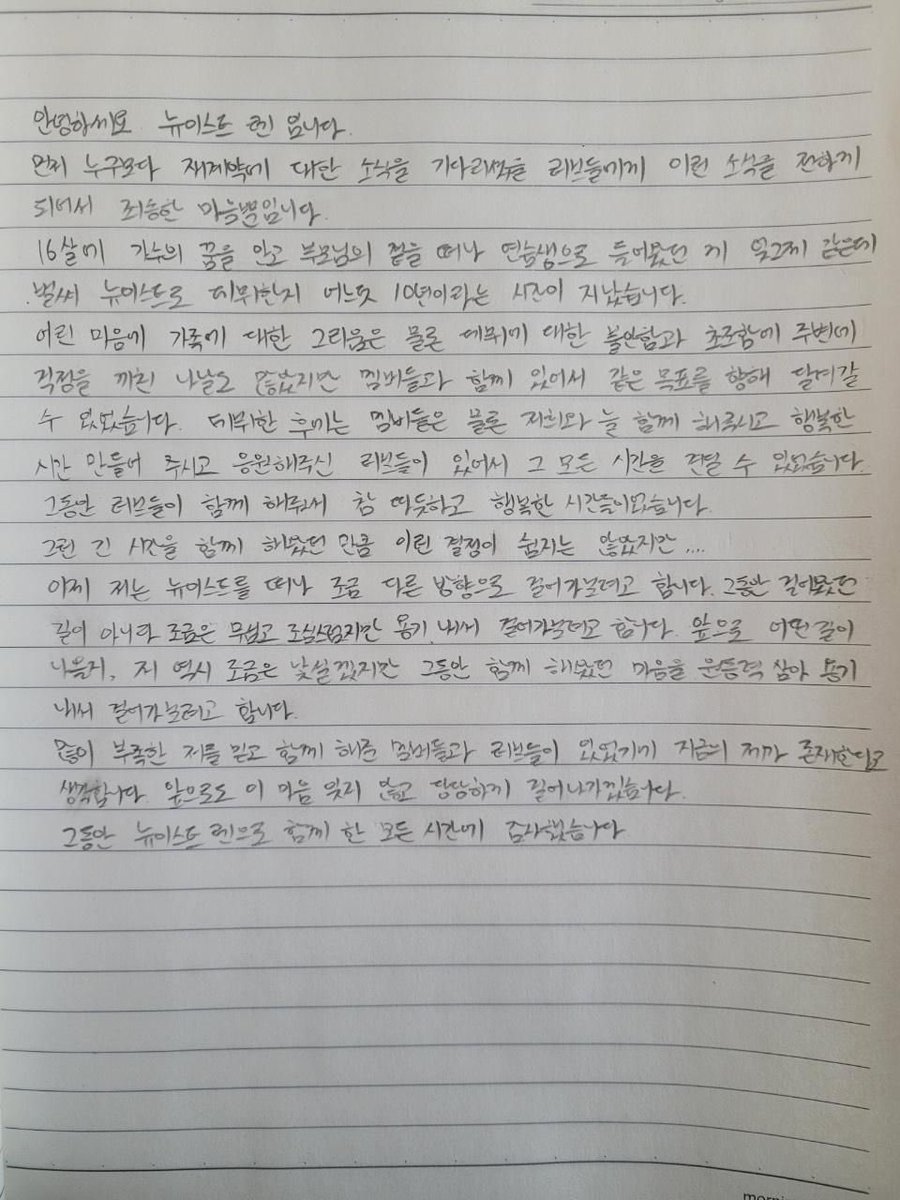 안녕하세요 뉴이스트 렌 입니다.
먼저 누구보다 재계약에 대한 소식을 기다리셨을 러브들에게 이런 소식을 전하게
되어서 죄송한 마음뿐입니다.
16살에 가수의 꿈을 안고 부모님의 곁을 떠나 연습생으로 들어왔던 게 엊그제 같은데
벌써 뉴이스트로 데뷔한지 어느덧 10년이라는 시간이 지났습니다.
어린 마음에 가족에 대한 그리움은 물론 데뷔에 대한 불안함과 초조함에 주변에
걱정을 끼친 나날도 많았지만 멤버들과 함께 있어서 같은 목표를 향해 달려갈
수 있었습니다. 데뷔한 후에는 멤버들은 물론 저희와 늘 함께 해주시고 행복한
시간 만들어 주시고 응원해주신 러브들이 있어서 그 모든 시간을 견딜 수 있었습니다.
그동안 러브들이 함께 해줘서 참 따듯하고 행복한 시간들이었습니다.
그런 긴 시간을 함께 해왔던 만큼 이런 결정이 쉽지는 않았지만....
이제 저는 뉴이스트를 떠나 조금 다른 방향으로 걸어가보려고 합니다. 그동안 걸어왔던
길이 아니라 조금은 무섭고 조심스럽지만 용기 내서 걸어가보려고 합니다. 앞으로 어떤 길이
나올지, 저 역시 조금은 낯설겠지만 그동안 함께 해왔던 마음을 원동력 삼아 용기
내서 걸어가보려고 합니다.
많이 부족한 저를 믿고 함께 해준 멤버들과 러브들이 있었기에 지금의 제가 존재한다고
생각합니다. 앞으로도 이 마음 잊지 않고 당당하게 걸어나가겠습니다.
그동안 뉴이스트 렌으로 함께 한 모든 시간에 감사했습니다